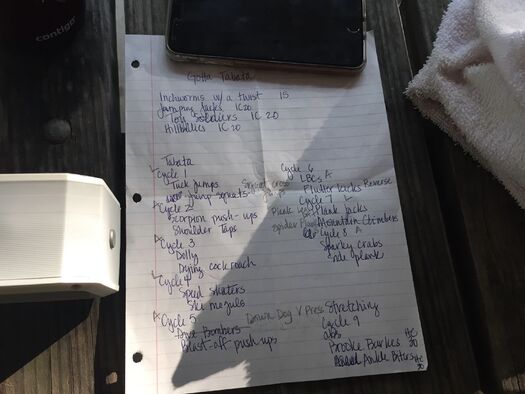 contigo
Gotta Tabata
Inchworms w/a twist 15
Jumping Jacks IC20
Toy Soldiers IC 20
Hillbillies IC20
Tabata
Cycle 1
Tuck jumps
jump squats
Cycle 2
Scorpion push-ups
Shoulder Taps
Cycle 3
Dolly
Dying cockroach
Cycle 4
Speed skaters
Ski moguls
Cycle 5
Bombers
Blast-off push ups
Down Dog V Press
Cycle 6
LBCs A
Flutter kicks Reverse
Cycle 7 L
Plank Jacks
Mountain Climbers
Cycle 8 A
Sparky crabs
Side plank
Stretching
Cycle 9
abs
Brooke Burkes
Ankle Biters